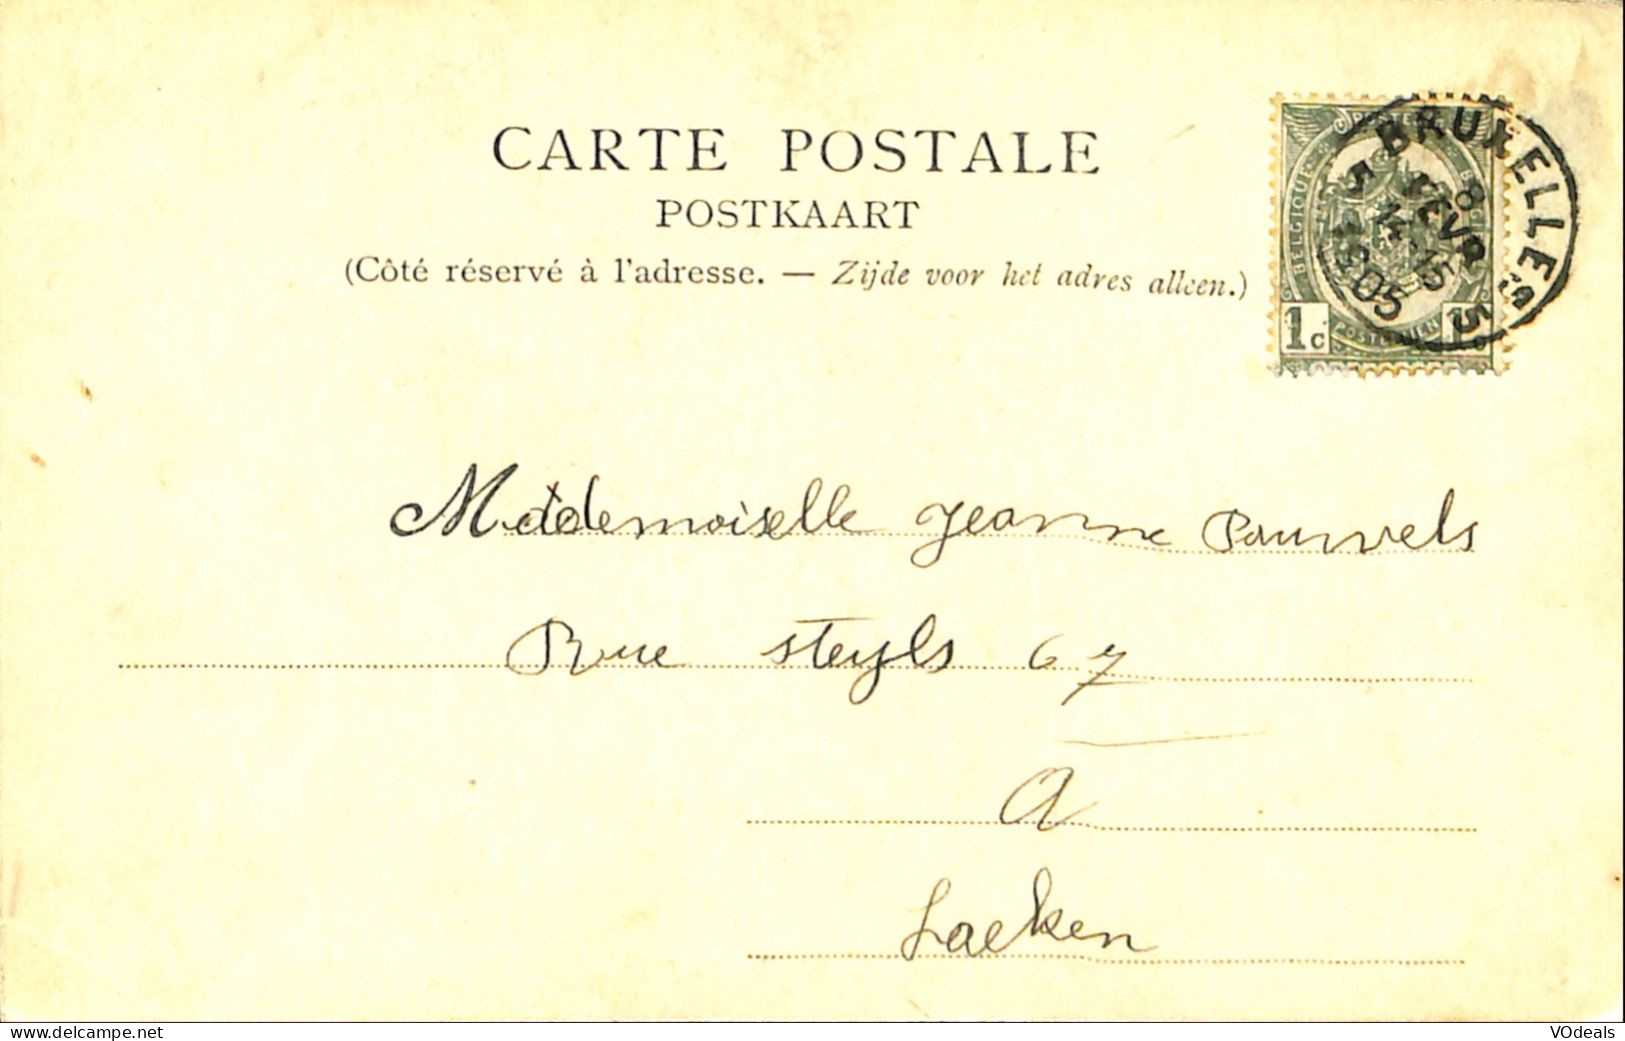 CARTE POSTALE
POSTKAART
(Côté réservé à l'adresse. — Zijde voor het adres alleen.)
BRUXELLES
5
8
FEVR
14-15
1905
5
BELGIQUE
1c
Mademoiselle Jeanne Pauwels
Rue Steyls 67
A
Laeken
www.delcampe.net
VOdeals